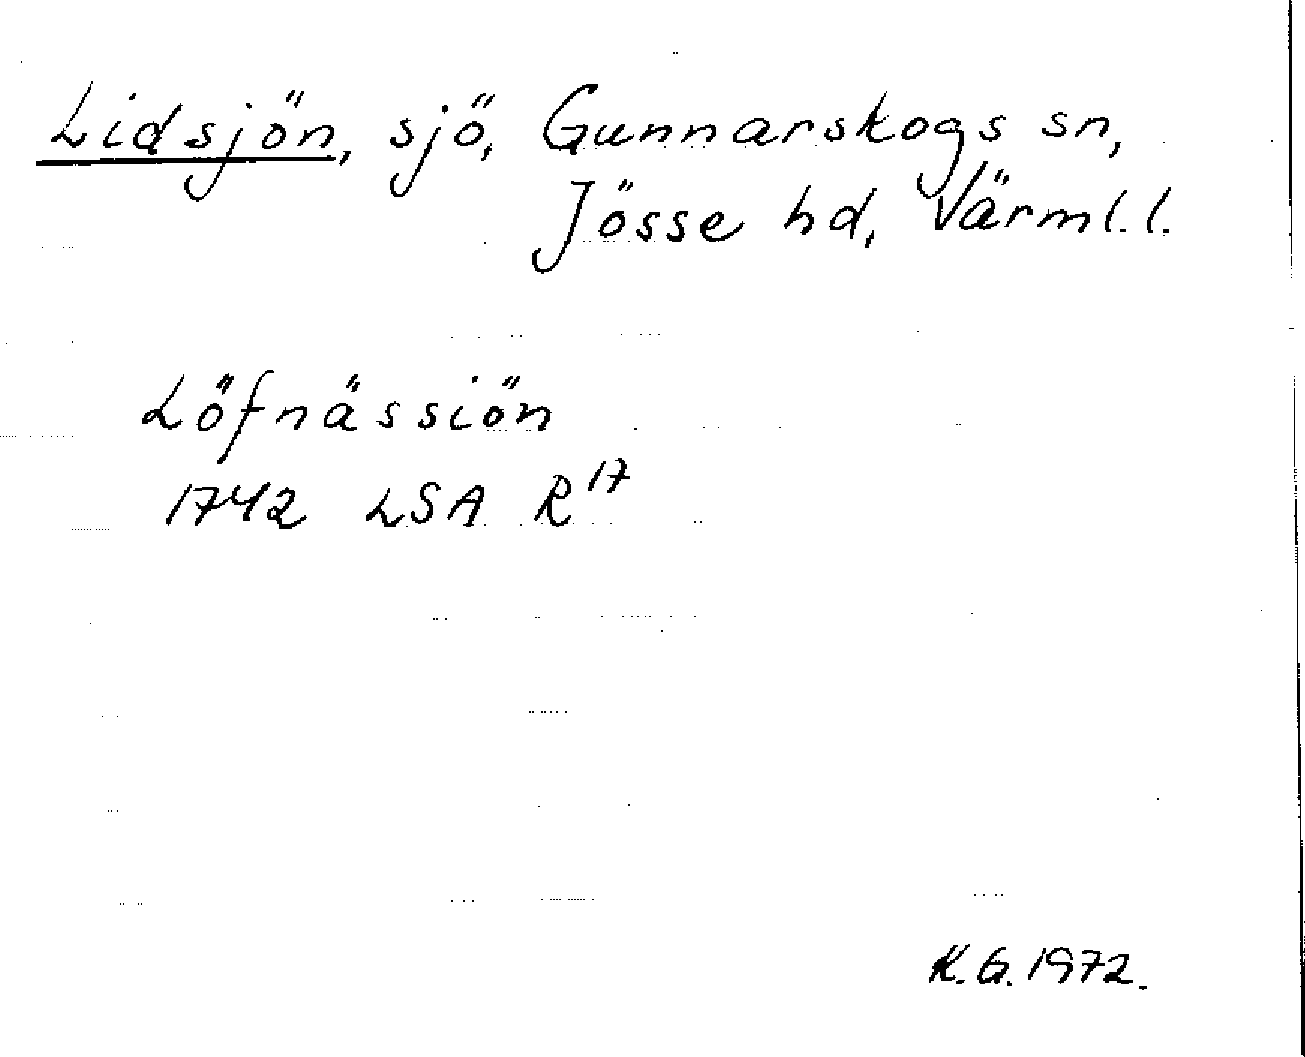 Lidsjön, sjö, Gunnarskogs sn,
Jösse hd, Värml. l.
Löfnässiön
1742 LSA R17
K.G. 1972.